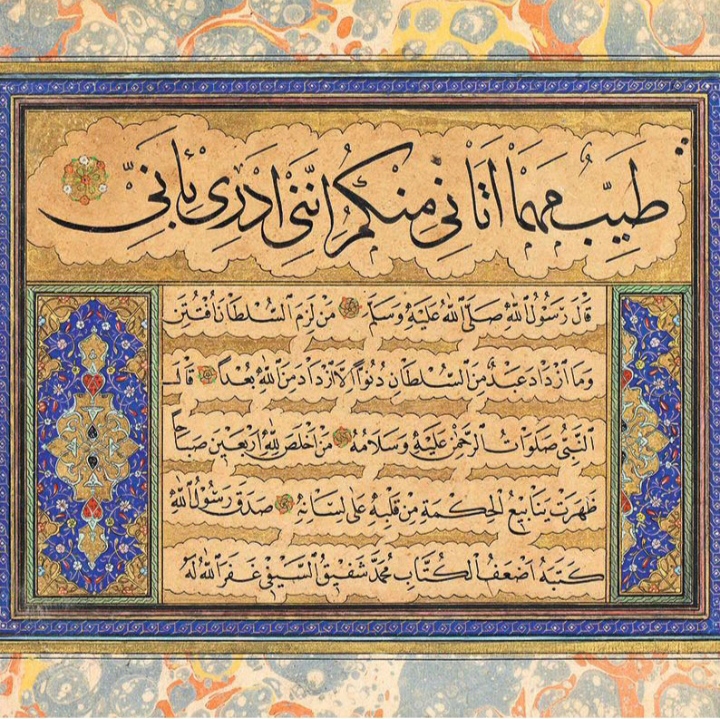 طَيِّبٌ مَهْمَا اَتَانِي مِنْكُمُ اِنَّنِي اَدْرِي بِاَنِّي
قَالَ رَسُولُ اللهِ صَلَّى اللهُ عَلَيْهِ وَسَلَّمَ مَنْ لَزِمَ السُّلْطَانَ افْتُتِنَ
وَمَا ازْدَادَ عَبْدٌ مِنَ السُّلْطَانِ دُنُوًّا اِلَّا ازْدَادَ مِنَ اللهِ بُعْدًا قَالَ
النَّبِيُّ صَلَوَاتُ الرَّحْمٰنِ عَلَيْهِ وَسَلَامُهُ مَنْ اَخْلَصَ لِلّٰهِ اَرْبَعِينَ صَبَاحًا
ظَهَرَتْ يَنَابِيعُ الْحِكْمَةِ مِنْ قَلْبِهِ عَلَى لِسَانِهِ صَدَقَ رَسُولُ اللهِ
كَتَبَهُ اَضْعَفُ الْكُتَّابِ مُحَمَّد شَفِيقُ السَّيْفِي غَفَرَ اللهُ لَهُ